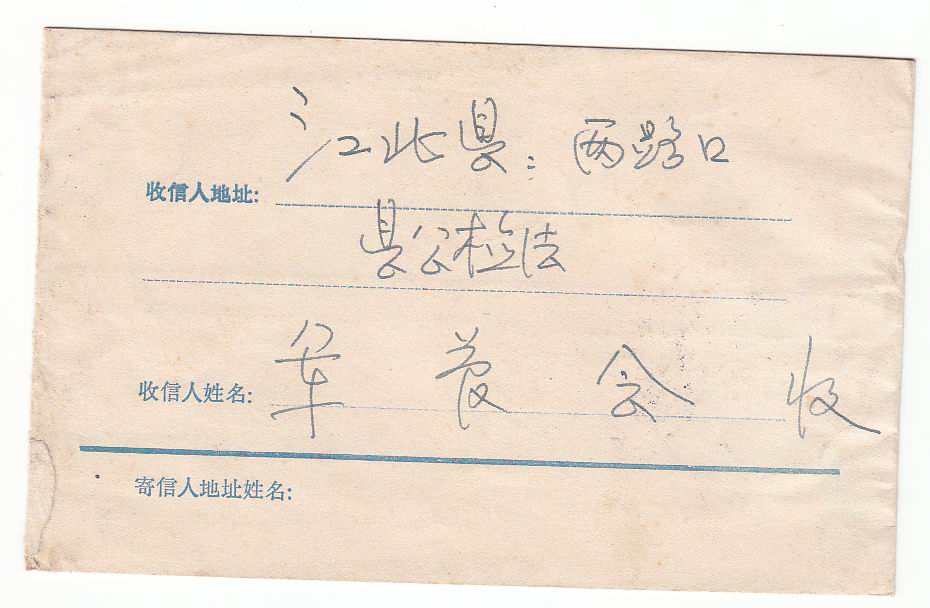 江北县:两路口
收信人地址:
县公检法
收信人姓名: 军管会 收
寄信人地址姓名: